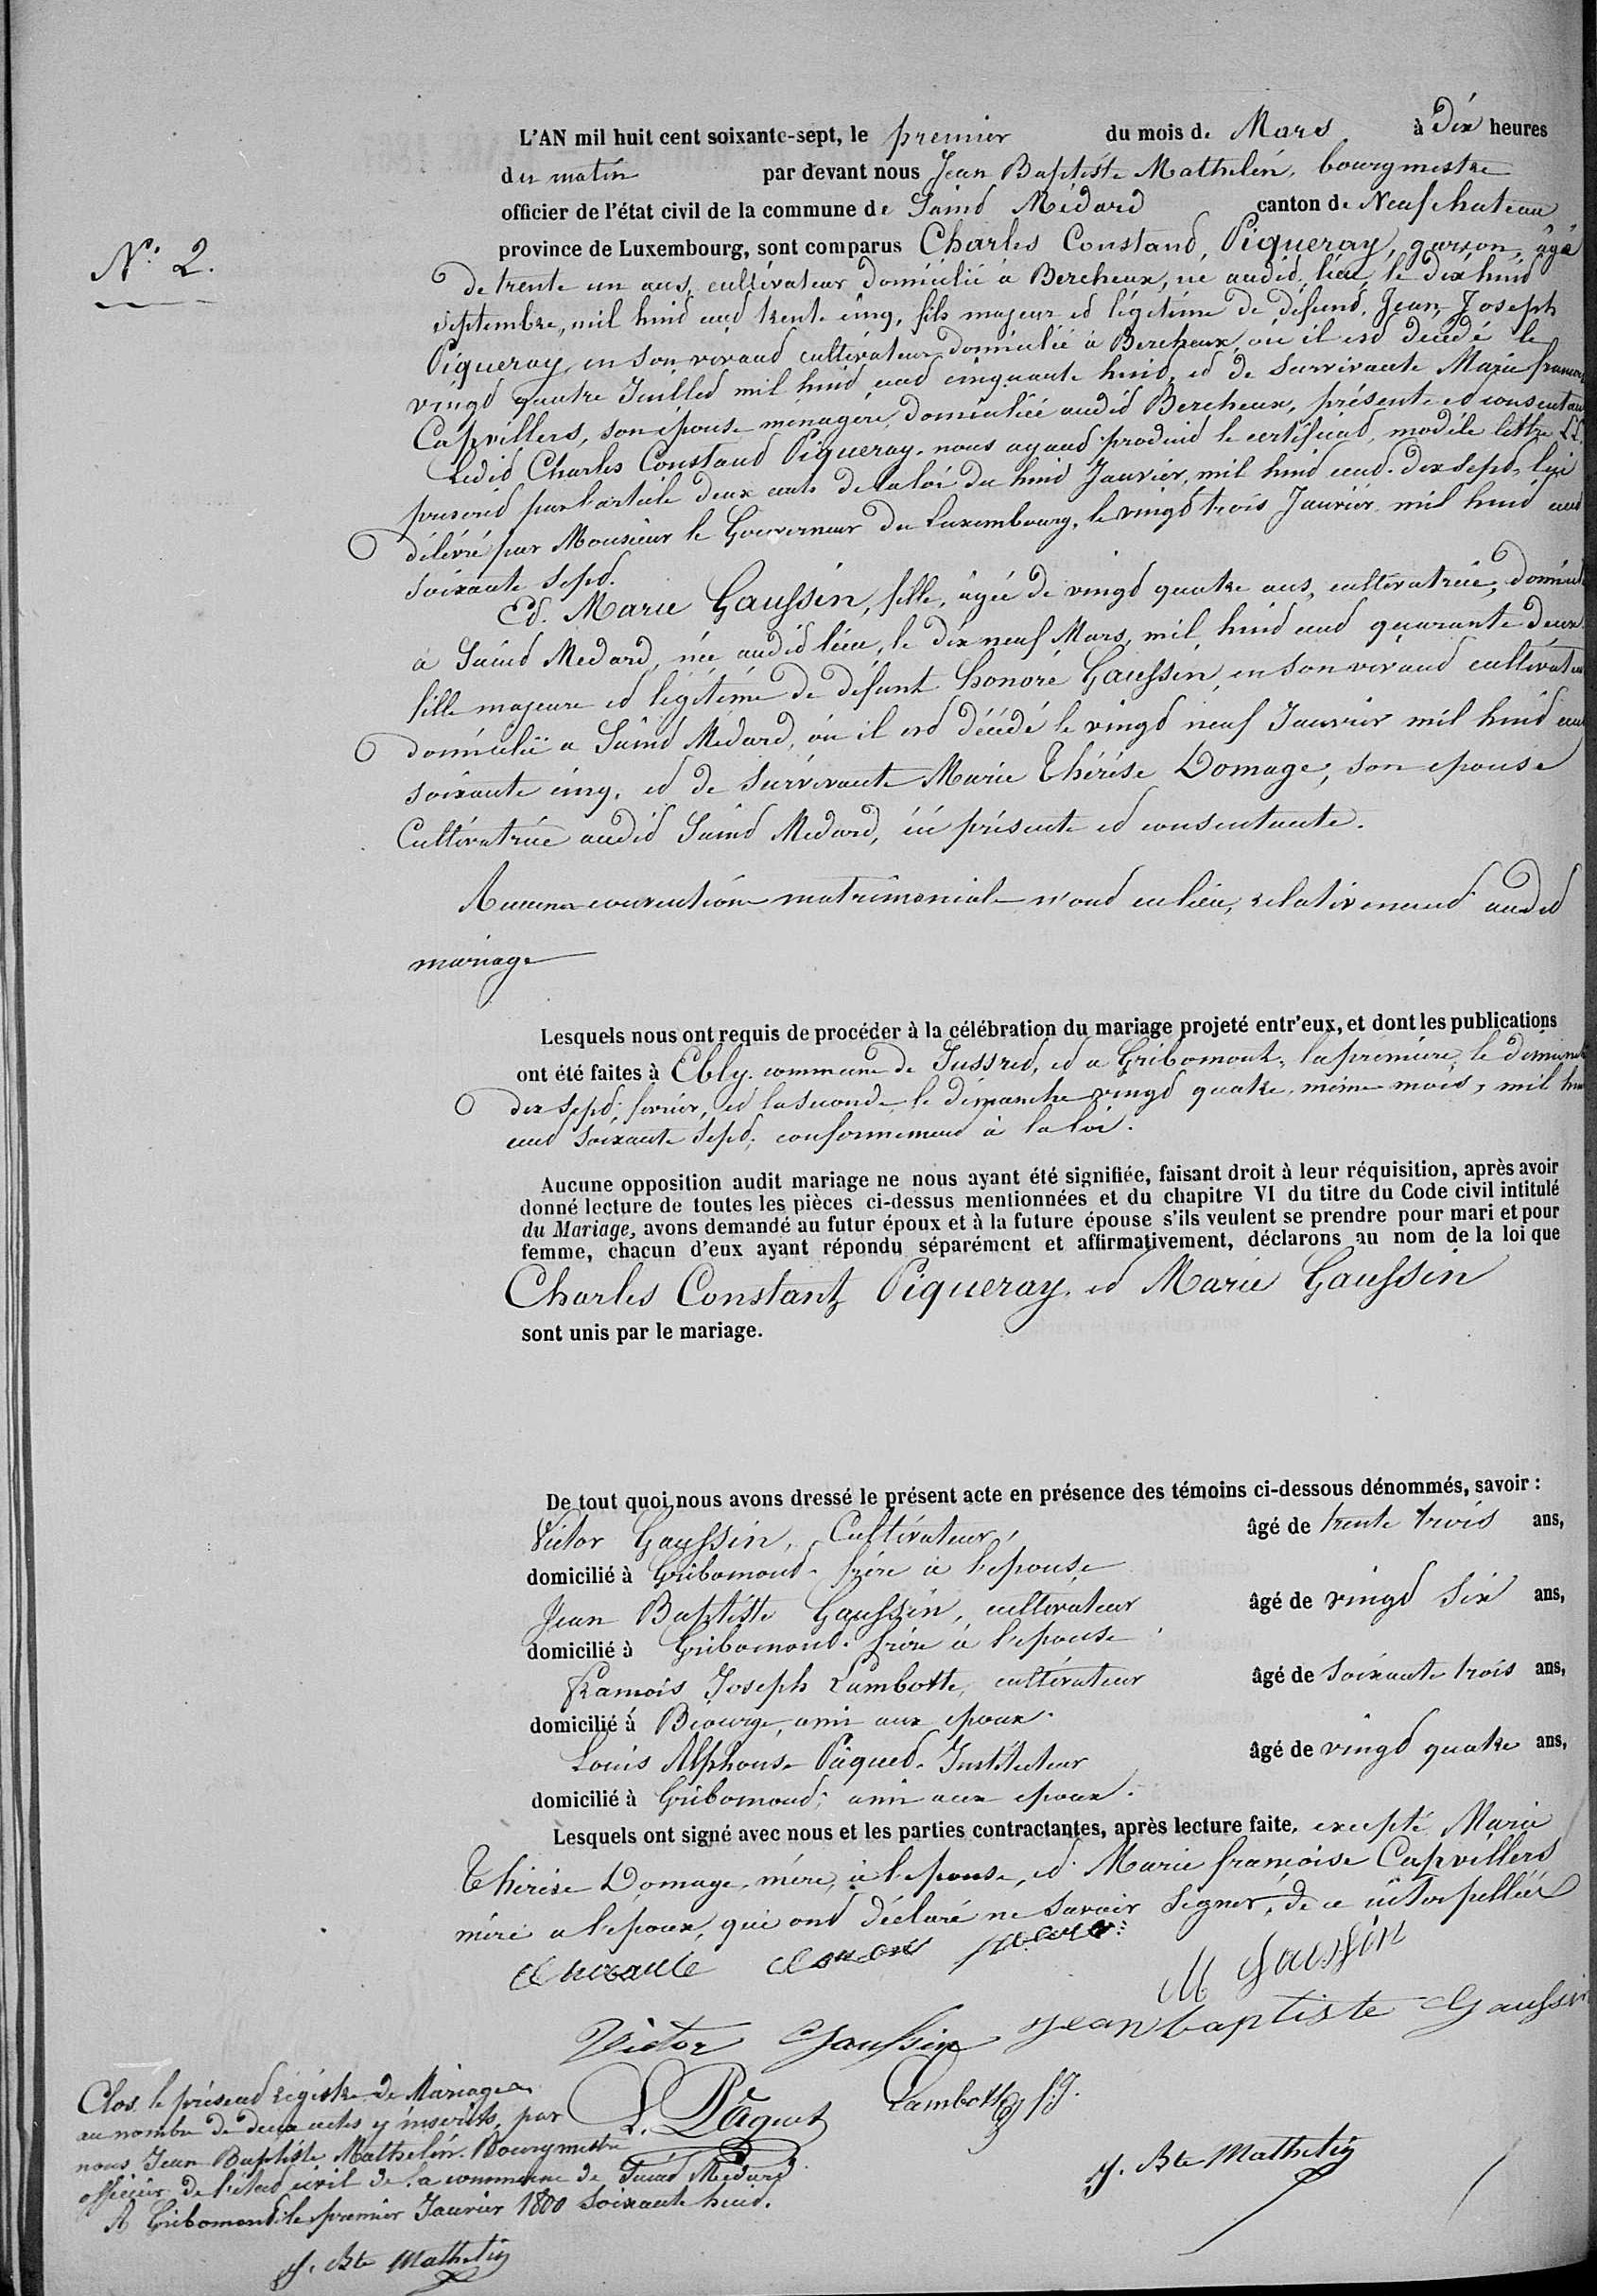 L'AN mil huit cent soixante-sept, le premier du mois de Mars à dix heures
du matin par devant nous Jean Baptiste Mathelin, bourgmestre
officier de l'état civil de la commune de Saind Médard canton de Neufchateau
province de Luxembourg, sont comparus Charles Constand Piqueray, garçon, âgé
N.º 2.
de trente un ans, cultivateur domicilié à Bercheux, né audid lieu, le dix huid
septembre, mil huid cend trente cinq, fils majeur ed légitime de défund Jean Joseph
Piqueray, en son vivand cultivateur domicilié à Bercheux, où il esd décédé le
vingd quatre Juilled mil huid cend cinquante huid, ed de survivante Marie
Capvillers, son épouse ménagère, domiciliée audid Bercheux, présente ed
Ledid Charles Constand Piqueray, nous ayand produid le certificad, modèle lettre LL.
prescrid par l'article deux cents de la loi du huid Janvier, mil huid cend dix sepd, lui
délivré par Monsieur le Gouverneur du Luxembourg, le vingd trois Janvier mil huid cend
soixante sepd.
Ed. Marie Gaussin, fille, âgée de vingd quatre ans, cultivatrice,
à Saind Medard, née audid lieu, le dix neuf Mars, mil huid cend quarante deux
fille majeure ed légitime de défunt honoré Gaussin, en son vivand
domicilié a Saind Medard, où il esd décédé le vingd neuf Janvier mil huid cend
soixante cinq, ed de survivante Marie Thérése Domage, son epouse
Cultivatrice audid Saind Medard, ici présente ed consentante.
Aucune convention matrimoniale n'ond eu lieu, relativemend audid
mariage
Lesquels nous ont requis de procéder à la célébration du mariage projeté entr'eux, et dont les publications
ont été faites à Ebly commune de Jussred, ed a Gribomont, la première, le
dix sepd fevrier, ed la seconde, le dimanche vingd quatre, même mois, mil
cend soixante sepd, conformemend à la loi.
Aucune opposition audit mariage ne nous ayant été signifiée, faisant droit à leur réquisition, après avoir
donné lecture de toutes les pièces ci-dessus mentionnées et du chapitre VI du titre du Code civil intitulé
du Mariage, avons demandé au futur époux et à la future épouse s'ils veulent se prendre pour mari et pour
femme, chacun d'eux ayant répondu séparément et affirmativement, déclarons au nom de la loi que
Charles Constant Piqueray, ed Marie Gaussin
sont unis par le mariage.
De tout quoi nous avons dressé le présent acte en présence des témoins ci-dessous dénommés, savoir :
Victor Gaussin, Cultivateur, âgé de trente trois ans,
domicilié à Gribomond. frére à l'epouse
Jean Baptiste Gaussin, cultivateur âgé de vingd six ans,
domicilié à Gribomond. frère à l'epouse
François Joseph Lambotte, cultivateur âgé de soixante trois ans,
domicilié à Biourge, ami aux epoux.
Louis Alphonse Pâqued. Instituteur âgé de vingd quatre ans,
domicilié à Gribomond; ami aux epoux.
Lesquels ont signé avec nous et les parties contractantes, après lecture faite, excepté Marie
Thérèse Domage, mère, à l'epouse, ed Marie françoise Capvillers
mère a l'epoux, qui ond déclaré ne savoir signer, de ce interpellées
M Gaussin
Victor Gaussin jean baptiste Gaussin
L. Pâquet Lambotte f. J.
J. Bte Mathelin
Clos le présend régistre de Mariages
au nombre de deux actes y inscrits, par
nous Jean Baptiste Mathelin. Bourgmestre
officier de l'étad civil de la commune de Saind Médard
A Gribomond le premier Janvier 1800 soixante huid.
J. Bte Mathelin